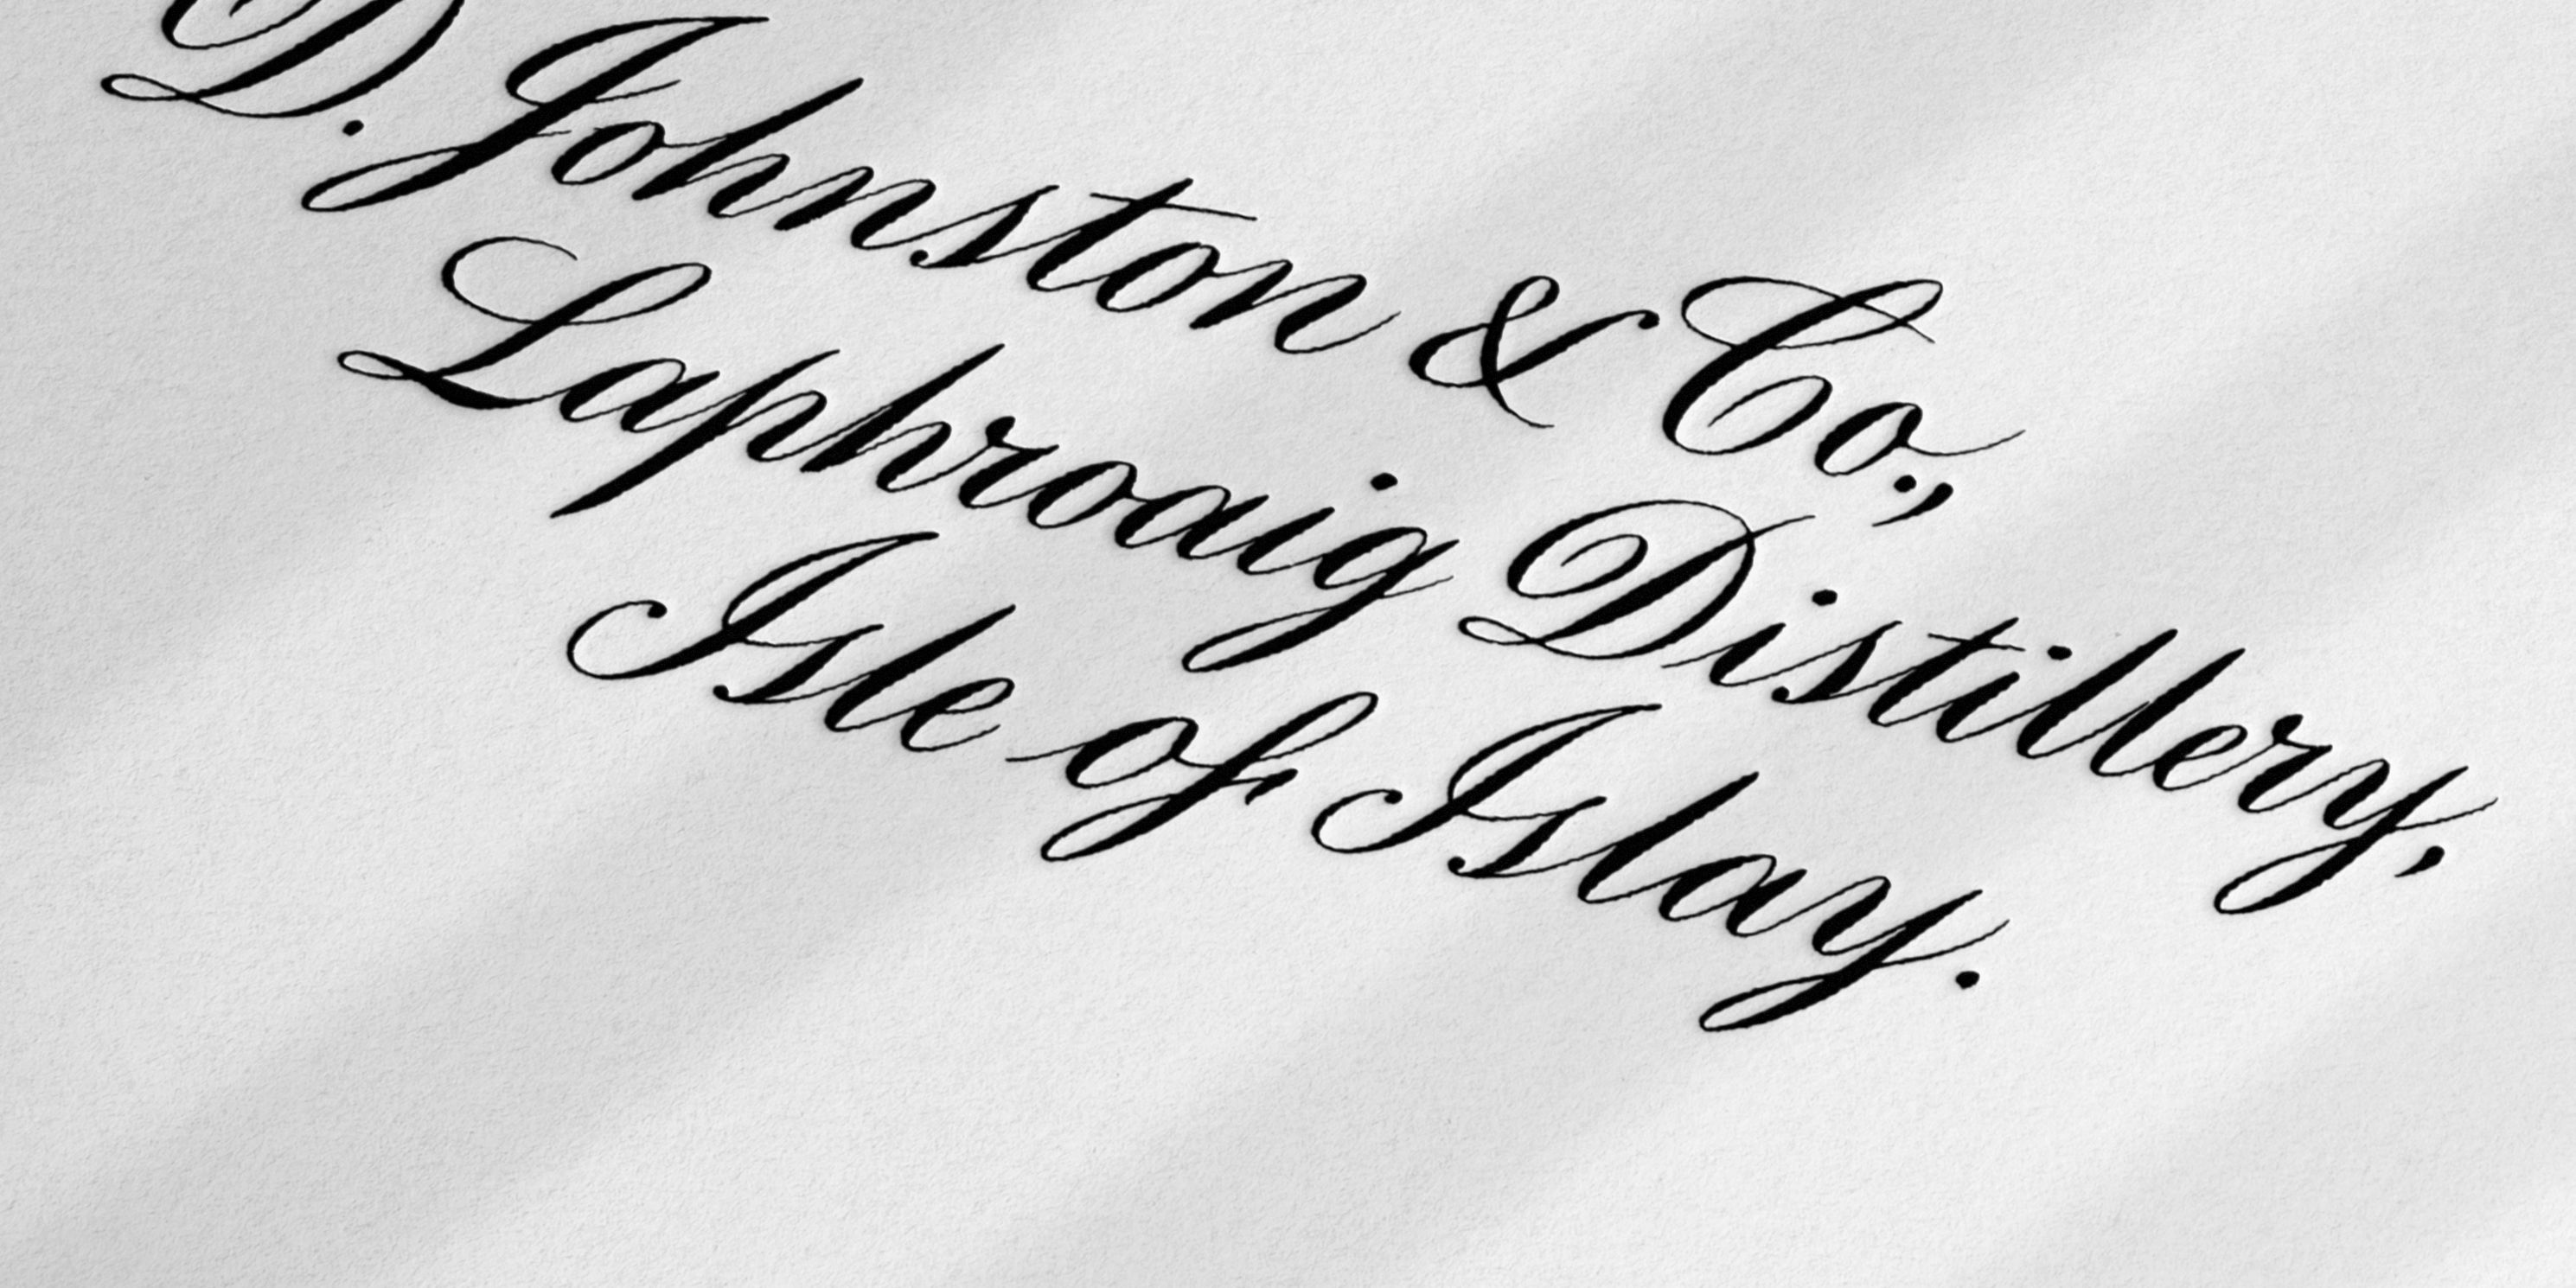 D. Johnston & Co.,
Laphroaig Distillery,
Isle of Islay.